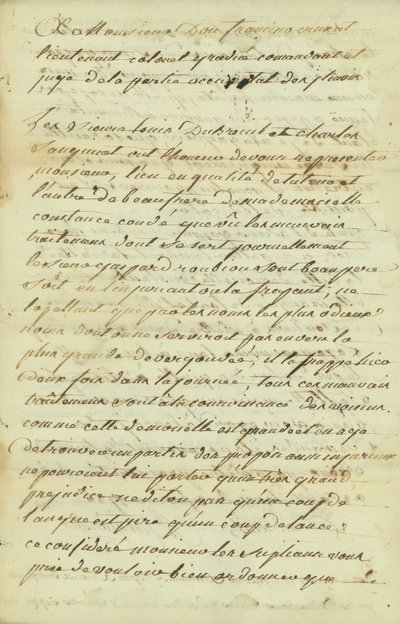 A Monsieur Don francisco cruzat
lieutenant colonel gradué comandant et
juge de la partie occidental des ylinois
Les sieurs louis Dubreuil et Charles
Sanguinet ont lhoneur de vous representer
monsieur, lun en qualité de tuteur et
l'autre de beaufrere de mademoiselle
constance condé que vû les mauvais
traitemens dont se sert journellement
le sieur gaspard roubieu sont beau pere
soit en linjuriant ou la frapent, ne
lapellant que par les noms les plus odieux
nous dont on ne serviroit pas envers la
plus grande devergondée; il la frappé
deux fois dans la journée, tous ces mauvais
traitemens sont a la connoissance des voisins
comme cette demoiselle est grande et en age
de trouver un partis des propos aussi injurieux
ne pouroient lui porter qu'un tres grand
prejudice ne dit on pas qu'un coup de
langue est pire qu'un coup de lance;
ce consideré monsieur les suplians vous
prie de vouloir bien ordonner que